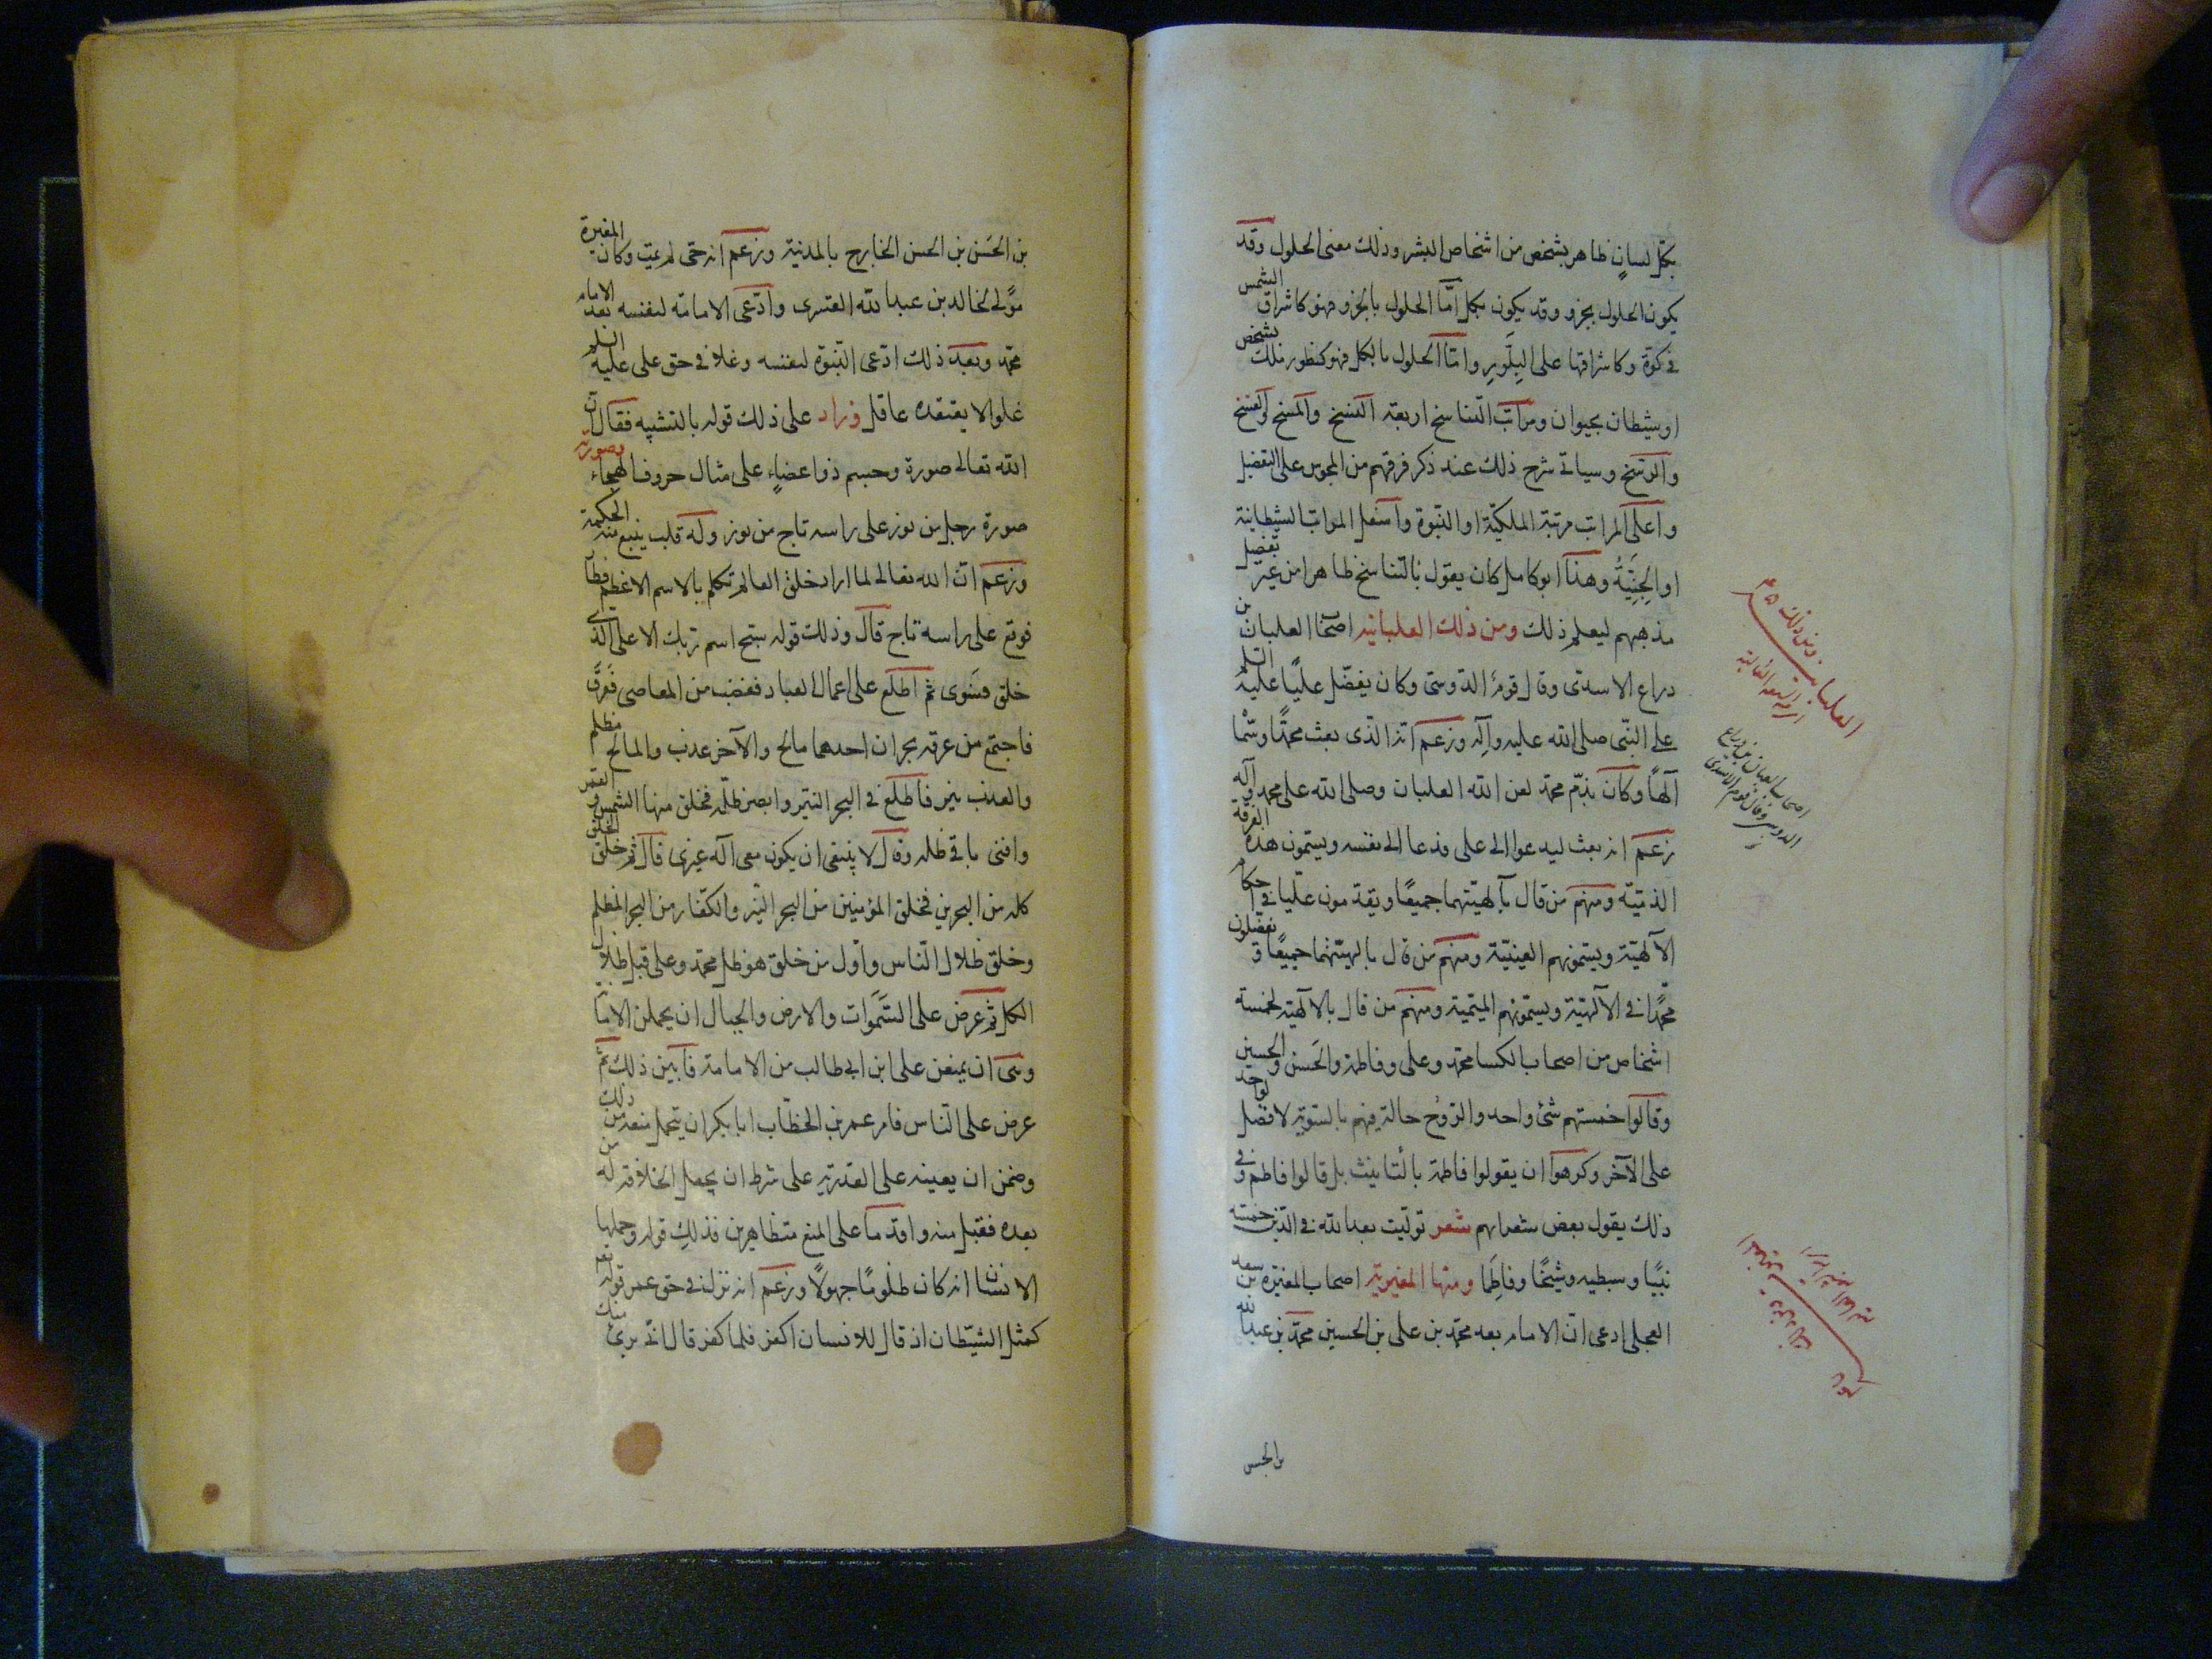 بكل لسان ظاهر بشخص من اشخاص البشر وذلك معنى الحلول وقد
يكون الحلول بجزو وقد يكون بكل امّا الحلول بالجزو فهو كاشراق الشمس
فى كوّة وكاشراقها على البلّور وامّا الحلول بالكل فهو كظهور ملك بشخص
او شيطان بحيوان ومراتب التناسخ اربعة النسخ والمسخ والفسخ
والرسخ وسياتى شرح ذلك عند ذكر فرقهم من المجوس على التفضيل
واعلى المراتب مرتبة الملكيّة او النبوة واسفل المراتب الشيطانية
او الجنّيّة وهذا ابو كامل كان يقول بالتناسخ ظاهرا من غير تفضيل
مذهبهم ليعلم ذلك ومن ذلك العلبائية اصحاب العلبان بن
دراع الاسدى وقال قوم الدوسى وكان يفضّل عليًّا عليه السلم
على النبى صلى الله عليه وآله وزعم انه الذى بعث محمدًا وسمّا
آلهًا وكان بذمّ محمد لعن الله العلبان وصلى الله على محمد وآله
زعم انه بعث ليدعوا الى على فدعا الى نفسه ويسمون هذه الفرقة
الذميّة ومنهم من قال بآلهيّتهما جميعًا ويقدمون عليّا فى احكام
الآلهيّة ويسمّونهم العينيّة ومنهم من قال بالهيّتهما جميعًا ويفضّلون
محمّدًا فى الآلهيّة ويسمّونهم الميميّة ومنهم من قال بالآلهيّة لخمسة
اشخاص من اصحاب الكسا محمّد وعلى وفاطمة والحَسن والحسين
وقالوا خمستهم شئ واحد والرّوح حالة فيهم بالسّوية لا فضل لواحد
على الآخر وكرهوا ان يقولوا فاطمة بالتانيث بل قالوا فاطم وفى
ذلك يقول بعض شعرائهم شعر تولّيت بعد الله فى الدّين خمسة
نبيًّا وسبطيه وشيخًا وفاطِمَا ومنها المغيرية اصحاب المغيرة بن سعد
العجلى ادعى انّ الامام بعد محمّد بن على بن الحسين محمّد بن عبد الله
بن الحسن
ومن ذلك
العلبائية
اصحاب العلبان بن دراع
الدوسى وقال قوم الاسدى
بن الحَسَن بن الحسن الخارج بالمدينة وزعم انه حىّ لم يمت وكان المغيرة
مولى لخالد بن عبد الله القسرى وادّعى الامامة لنفسه بعد الامام
محمّد وبعد ذلك ادّعى النّبوّة لنفسه وغلا فى حق على عليه السلم
غلوا لا يعتقده عاقل وزاد على ذلك قوله بالتشبيه فقال ان
الله تعالى صورة وجسم ذو اعضاءٍ على مثال حروف الهجاء وصورته
صورة رجل من نور على راسه تاج من نور وله قلب ينبع منه الحكمة
وزعم انّ الله تعالى لما اراد خلق العالم تكلم بالاسم الاعظم فطآ
فوقع على راسه تاج قال وذلك قوله سبّح اسم ربّك الاعلى الذى
خلق فسَوى ثم اطلع على اعمال العباد فغضب من المعاصى فَعَرَقَ
فاجتمع من عرقه بحران احدهما مالح والآخر عذب والمالح مظلم
والعذب نير فاطلع فى البحر النيّر وابصر ظلّه فخلق منها الشمس والقمر
وافنى باقى ظله وقال لا ينبغى ان يكون معى آله غيرى قال ثم خلق الخلق
كله من البحرين فخلق المؤمنين من البحر النيّر والكفّار من البحر المظلم
وخلق ظلال النّاس واوّل من خلق هو ظل محمّد وعلى قبل ظلال
الكل ثم عرض على السّمَوات والارض والجبال ان يحملن الامانة
وهى ان يمنعن على ابن ابى طالب من الامامة فابين ذلك ثم
عرض على النّاس فامر عمر بن الخطّاب ابا بكر ان يتحمل منعه من ذلك
وضمن ان يعينه على الغدر به على شرط ان يجعل الخلافة له من
بعده فقبل منه واقدما على المنع متظاهرين فذلك قوله وحملها
الانسان انه كان ظلومًا جهولًا وزعم انه نزل فى حق عمر قوله تعم
كمثل الشيّطان اذ قال للانسان اكفر فلما كفر قال انّى برئ منك